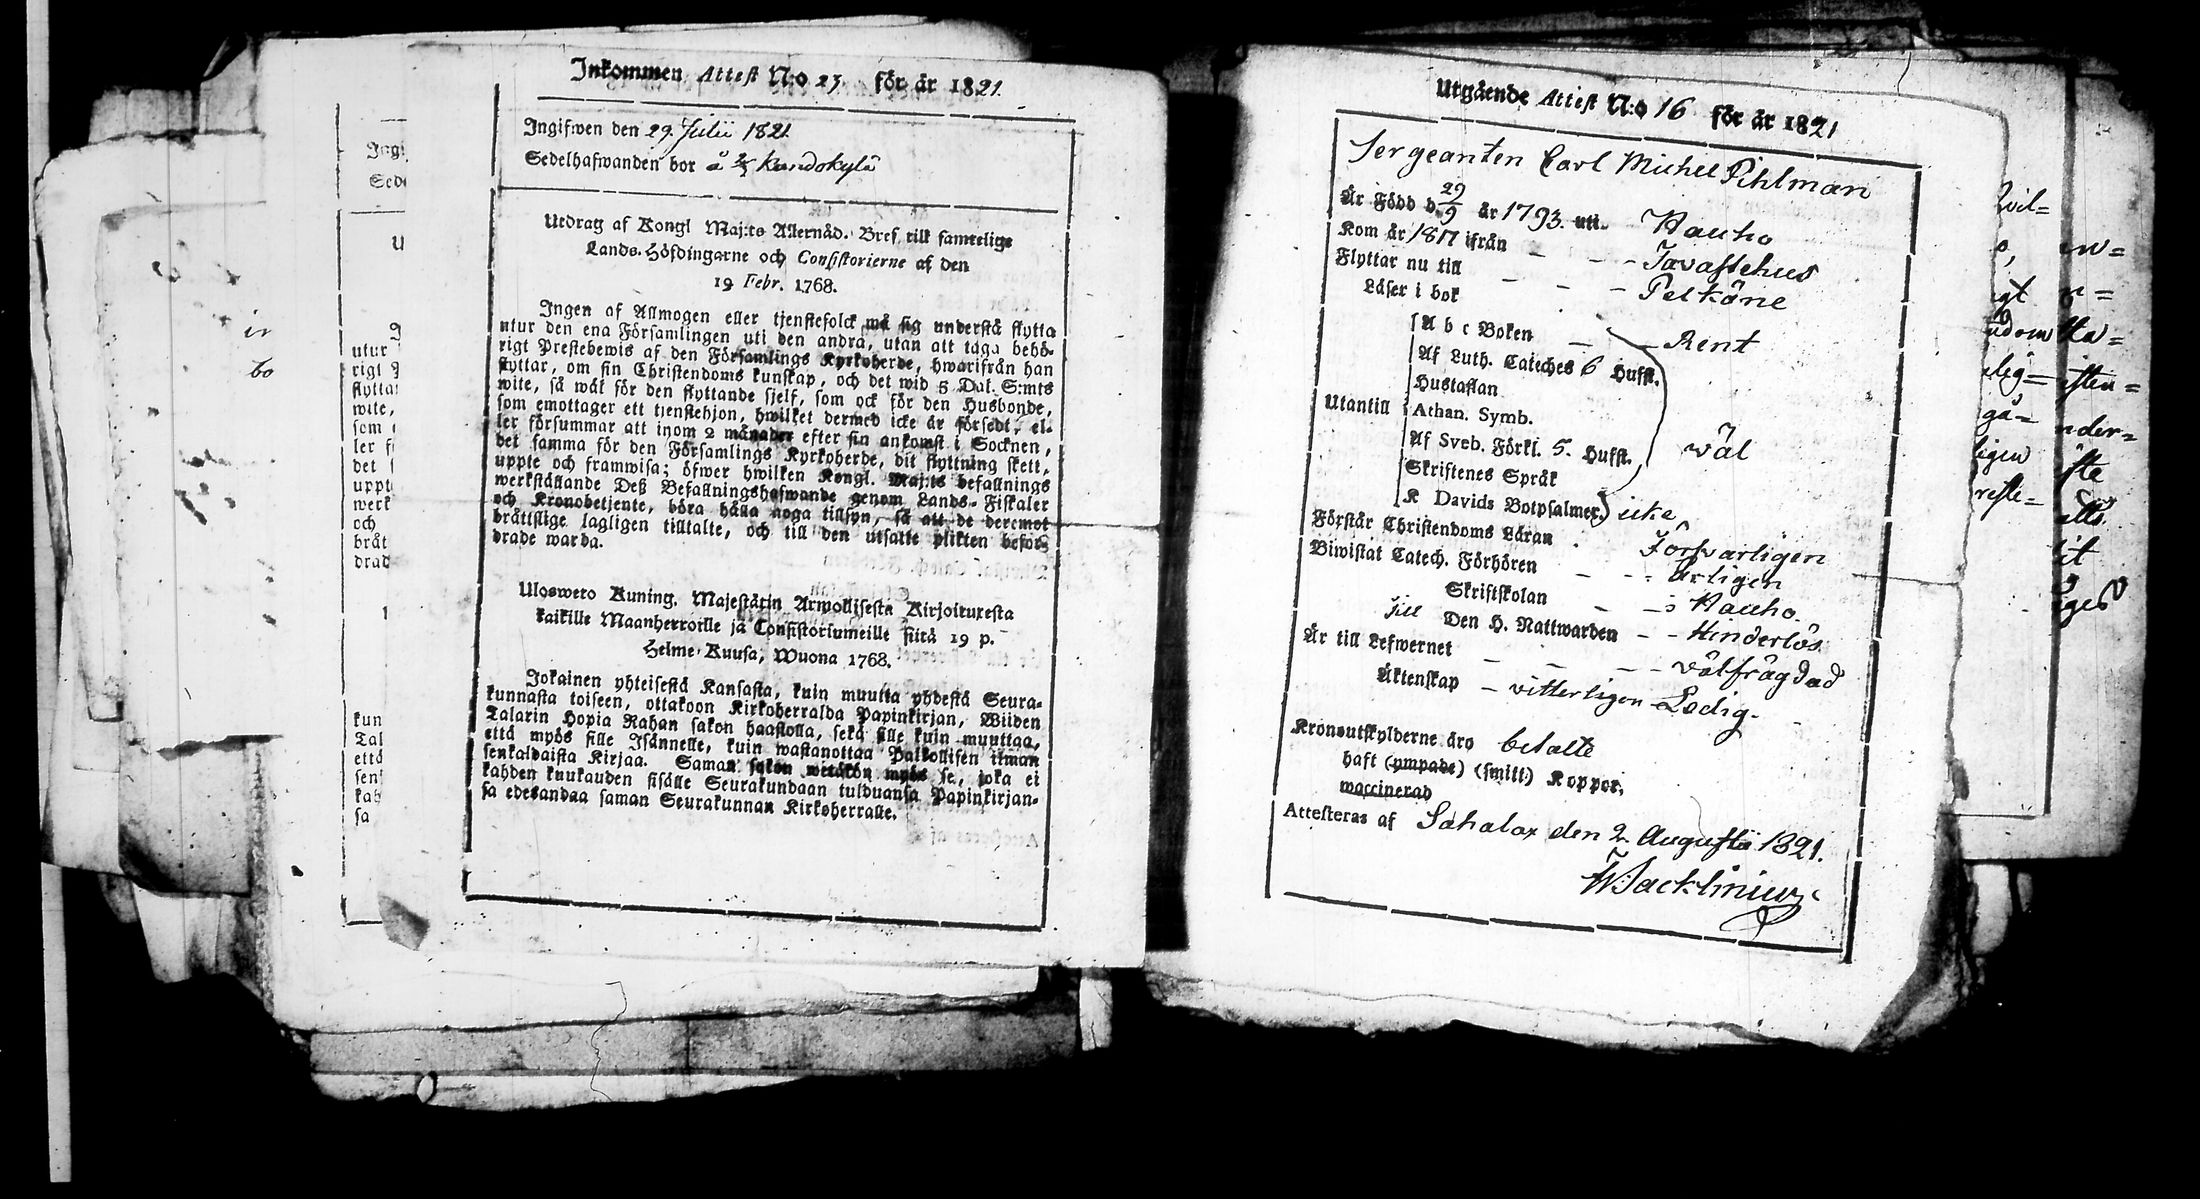 Inkommen Attest N:o 23 för år 1821.
Ingifwen den 29 Julii 1821
Sedelhafwanden bor å Kandokylä
Utdrag af Kongl Maj:ts Allernåd. Bref till samtelige
Lands-Höfdingarne och Consistorierne af den
19 Febr. 1768.
Ingen af Allmogen eller tjenstefolck må sig understå flytta
utur den ena Församlingen uti den andra, utan att taga behö-
rigt Prestebewis af den Församlings Kyrkoherde, hwarifrån han
flyttar, om sin Christendoms kunskap, och det wid 5 Dal. S:mts
wite, så wäl för den flyttande sjelf, som ock för den Husbonde,
som emottager ett tjenstehjon, hwilket dermed icke är försedt, el-
ler försummar att inom 2 månader efter sin ankomst i Socknen,
det samma för den Församlings Kyrkoherde, dit flyttning skett,
uppte och framwisa; öfwer hwilken Kongl. Maj:ts befallnings
werkställande Deß Befallningshafwande genom Lands-Fiskaler
och Kronobetjente, böra hålla noga tillsyn, så att de deremot
bråttslige lagligen tilltalte, och till den utsatte plikten befor-
drade warda.
Uloswето Kuning. Majestätin Armollisesta Kirjoituxesta
kaikille Maanherroille ja Consistoriumeille siitä 19 p.
Helme-Kuusa, Wuona 1768.
Jokainen yhteisestä Kansasta, kuin muutta yhdestä Seura-
kunnasta toiseen, ottakoon Kirkoherralda Papinkirjan, Wiiden
Talarin Hopia Rahan sakon haastolla, sekä sille kuin muuttaa,
että myös sille Isännelle, kuin wastanottaa Palkollisen ilman
senkaldaista Kirjaa. Saman sakon wetäkön myös se, joka ei
kahden kuukauden sisälle Seurakundaan tulduansa Papinkirjan-
sa edesandaa saman Seurakunnan Kirkoherralle.
Utgående Attest N:o 16 för år 1821
Sergeanten Carl Michel Pihlman
Är Född d. 29/9 år 1793. uti Hauho
Kom år 1817 ifrån - - - Tavastehus
Flyttar nu till - - - Pelkäne
Läser i bok
A b c Boken - - Rent
Af Luth. Cateches 6 Hufst.
Hustaflan
Utantill Athan. Symb.
Af Sveb. Förkl. 5. Hufst. wäl
Skriftenes Språk
K Davids Botpsalmer, icke
Förstår Christendoms Läran - Försvarligen
Biwistat Catech. Förhören - - - Årligen
Skriftskolan - - i Hauho.
till Den H. Nattwarden - - Hinderlös
Är till Lefwernet - - - - wälfrägdad
Äktenskap - vitterligen Ledig.
Kronoutskylderne äro betalte
haft (ympade) (smitt:) Koppor,
waccinerad
Attesteras af Sahalax den 2 Augusti 1821.